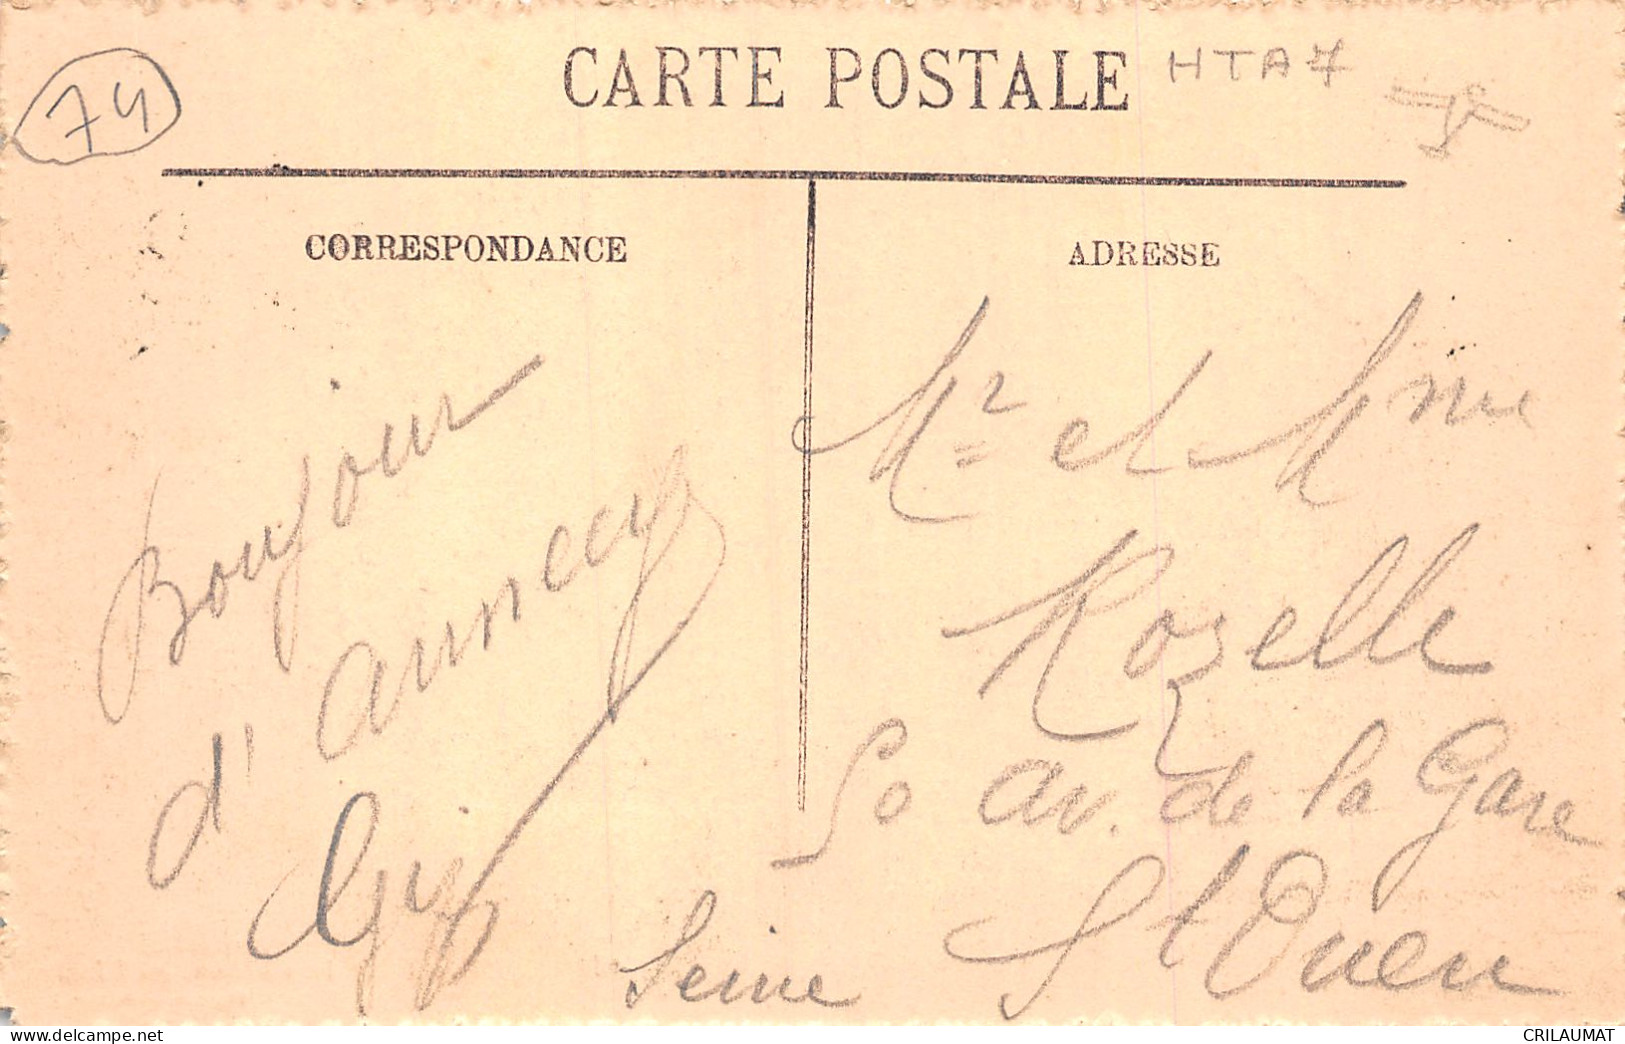 74
CARTE POSTALE
HTA7
CORRESPONDANCE
ADRESSE
Bonjour
d'Annecy
Mr et Mme
Rozelle
50 av. de la Gare
St Ouen
Seine
CRILAUMAT